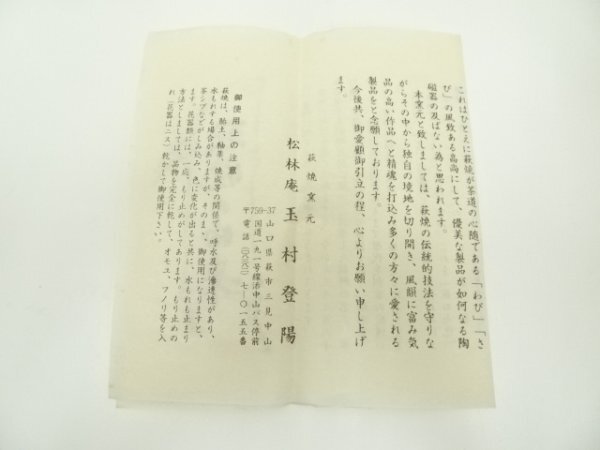 これはひとえに萩焼が茶道の心随である「わび」「さ
び」の風致ある高尚にして、優美な製品が如何なる陶
磁器の及ばない為と思われます。
本窯元と致しましては、萩焼の伝統的技法を守りな
がらその中から独自の境地を切り開き、風韻に富み気
品の高い作品へと精魂を打込み多くの方々に愛される
製品をと念願しております。
今後共、御愛顧御引立の程、心よりお願い申し上げ
ます。
萩焼窯元
松林庵 玉村登陽
〒759-37 山口県萩市三見中山
国道一九一号線沿中山バス停前
電話(〇八三八二)七-〇一五五番
御使用上の注意
萩焼は、胎土、釉薬、焼成等の関係で、呼水及び滲透性があり、
水もれする場合がありますが、そのまゝ、御使用になりますと、
茶シブなどがしみ込み、色に変化が出ると共に、水もれも止まり
ます。花器類には、一応、もり止めがしてあります。もり止めの
方法としましては、品物を完全に乾して、オモユ、フノリ等を入
れ(花器はニス)乾かして御使用下さい。